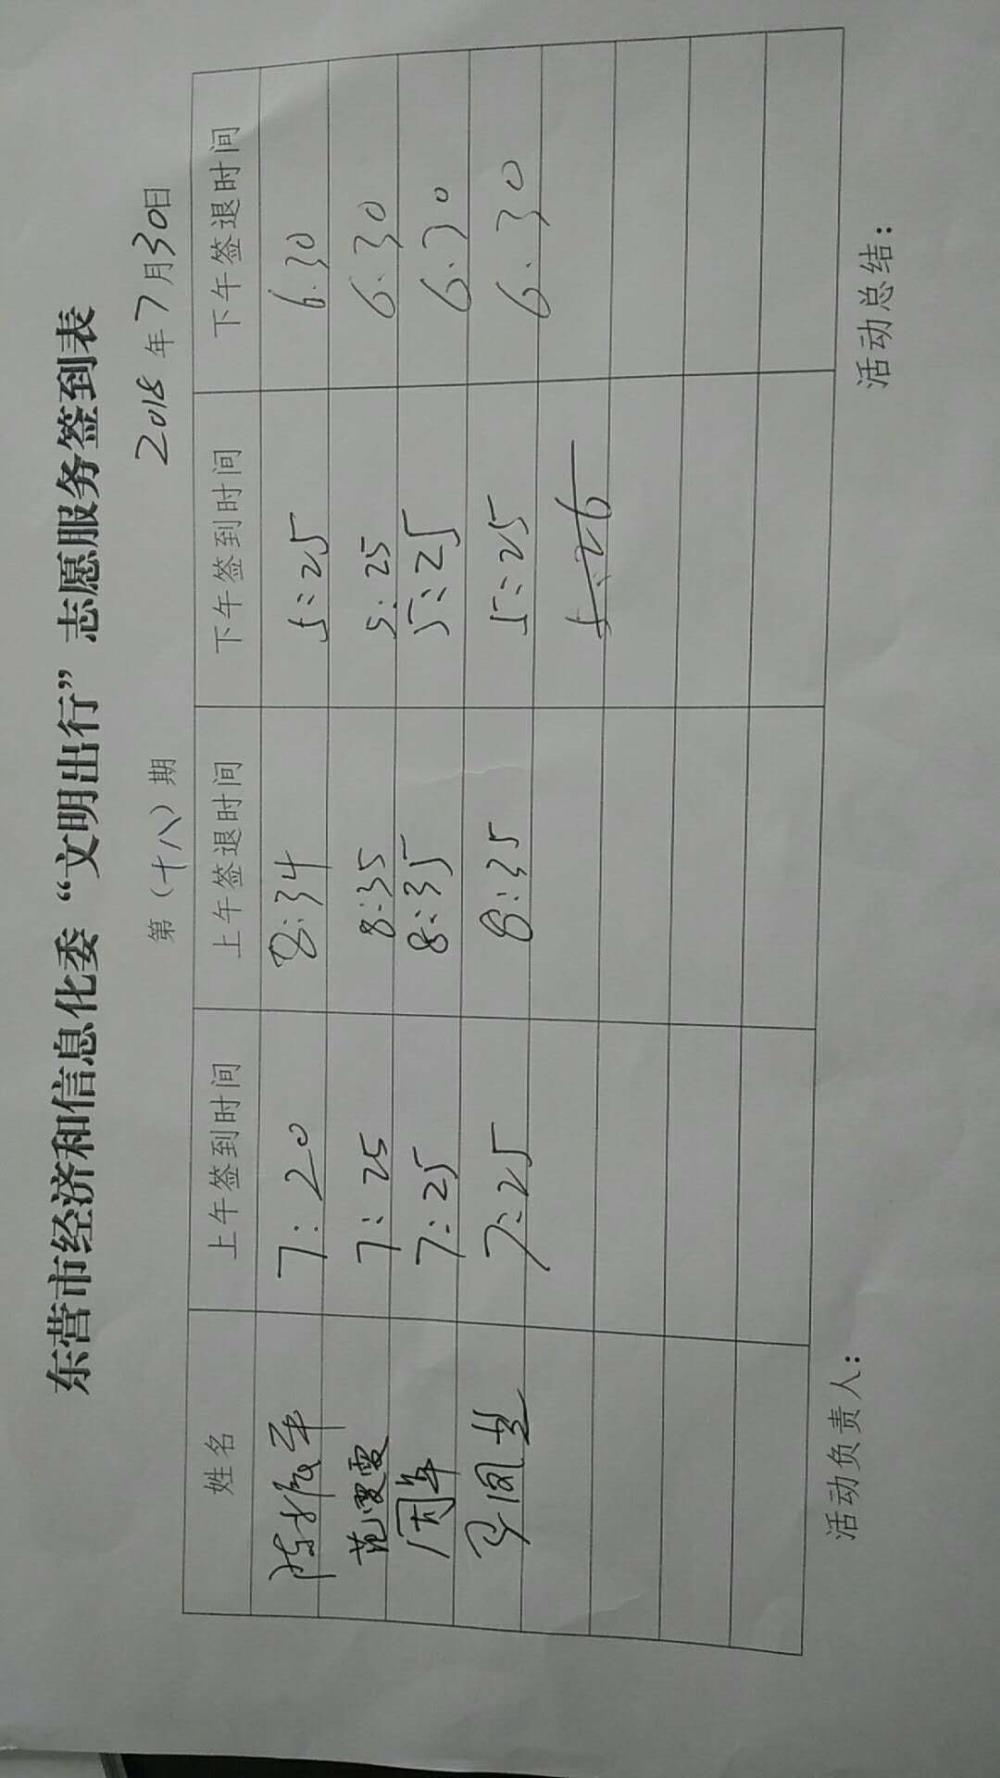 东营市经济和信息化委“文明出行”志愿服务签到表
第（十八）期 2018年7月30日
姓名 上午签到时间 上午签退时间 下午签到时间 下午签退时间
陈振军 7:20 8:34 5:25 6.30
范雯雯 7:25 8:35 5:25 6.30
周年 7:25 8:35 5:25 6.30
7:25 8:35 5:25 6.30
5:26
活动负责人： 活动总结：